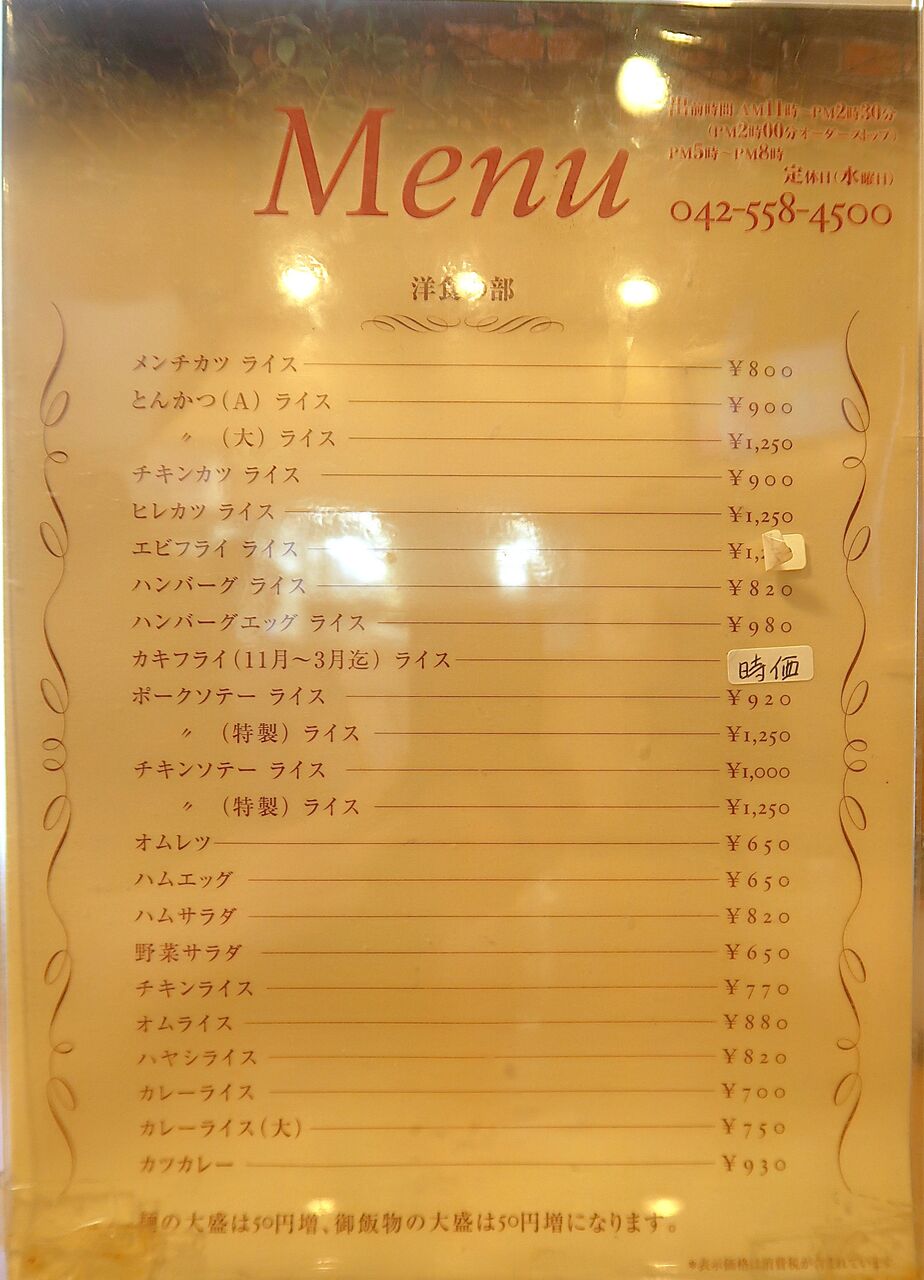 Menu
出前時間 AM11時~PM2時30分
(PM2時00分オーダーストップ)
PM5時~PM8時
定休日(水曜日)
042-558-4500
洋食の部
メンチカツ ライス ¥800
とんかつ(A) ライス ¥900
〃 (大) ライス ¥1,250
チキンカツ ライス ¥900
ヒレカツ ライス ¥1,250
エビフライ ライス ¥1,
ハンバーグ ライス ¥820
ハンバーグエッグ ライス ¥980
カキフライ(11月~3月迄) ライス 時価
ポークソテー ライス ¥920
〃 (特製) ライス ¥1,250
チキンソテー ライス ¥1,000
〃 (特製) ライス ¥1,250
オムレツ ¥650
ハムエッグ ¥650
ハムサラダ ¥820
野菜サラダ ¥650
チキンライス ¥770
オムライス ¥880
ハヤシライス ¥820
カレーライス ¥700
カレーライス(大) ¥750
カツカレー ¥930
麺の大盛は50円増、御飯物の大盛は50円増になります。
*表示価格は消費税が含まれています